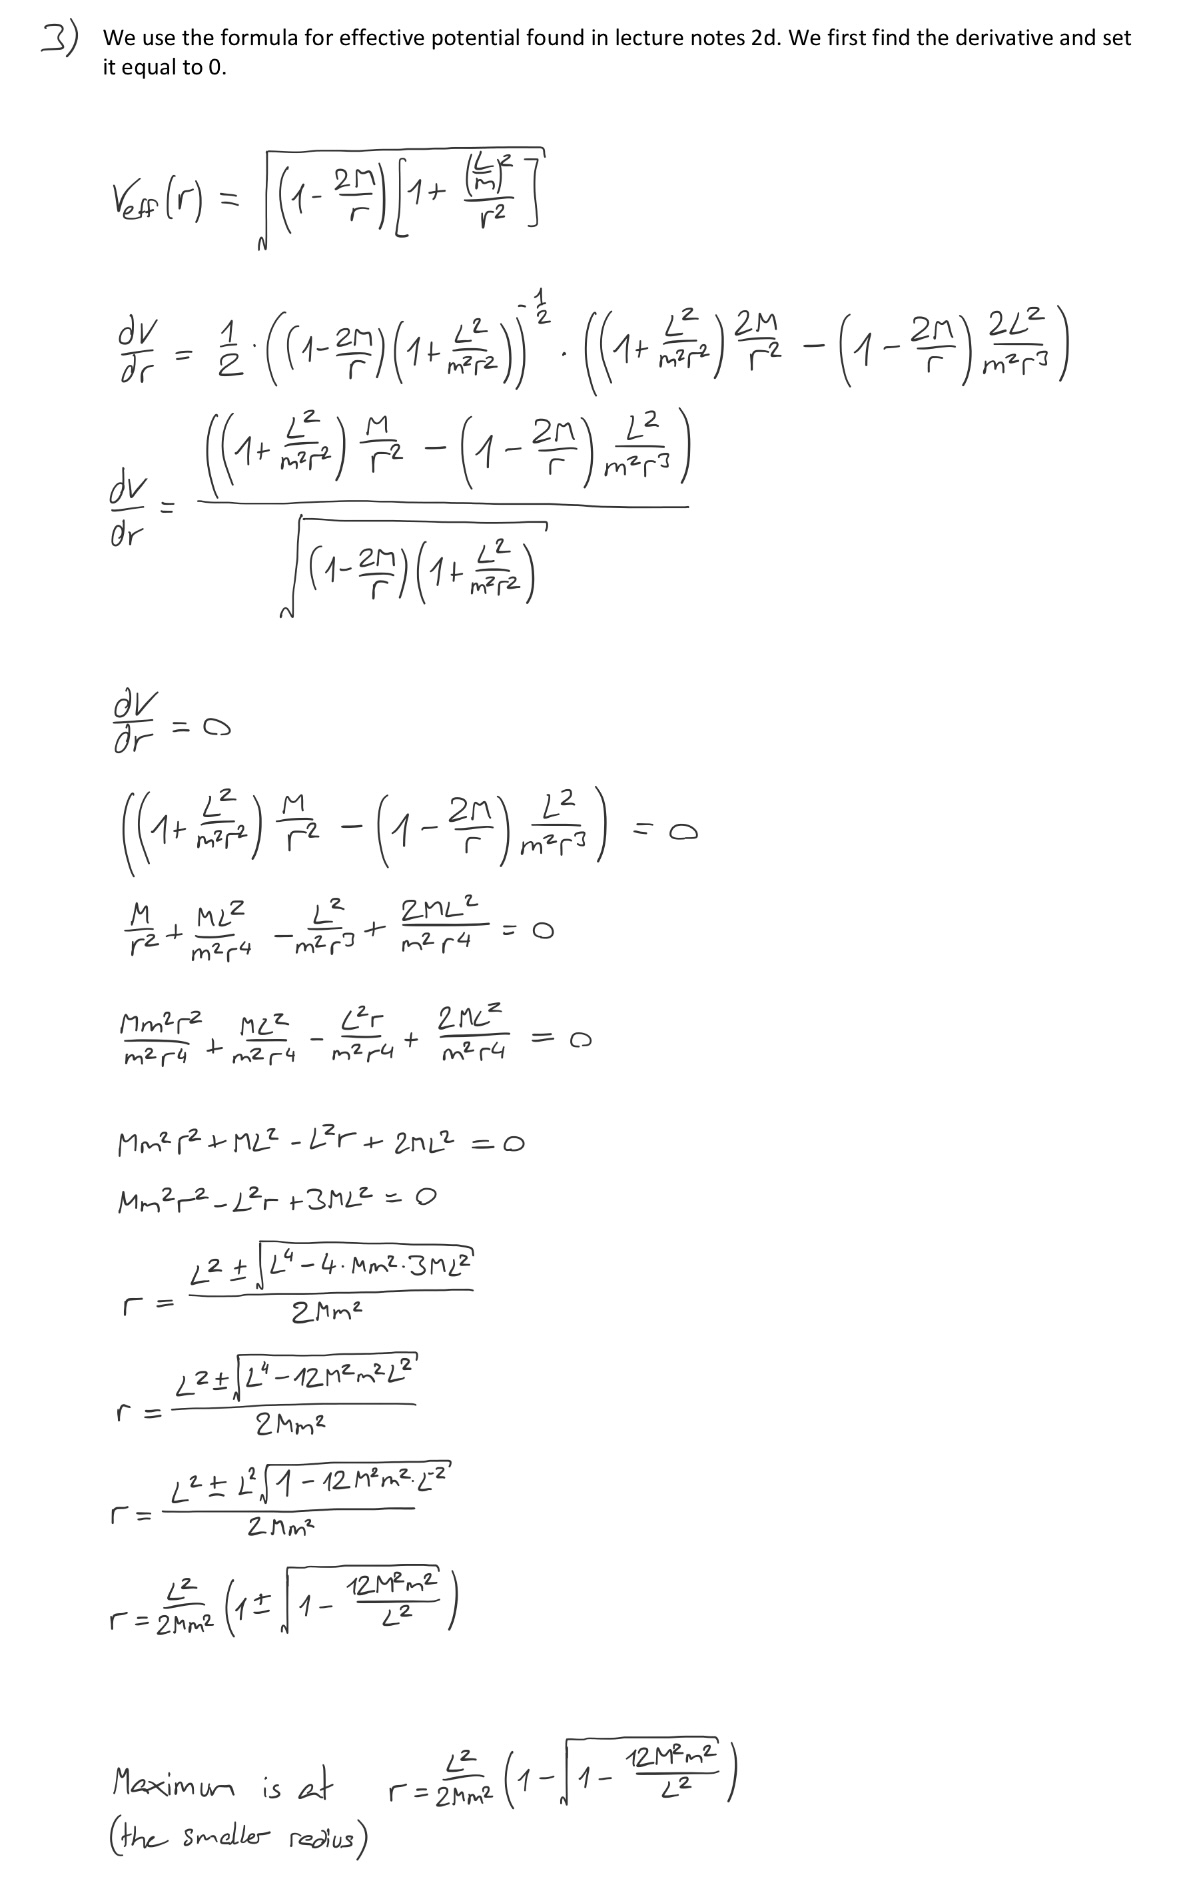 3) We use the formula for effective potential found in lecture notes 2d. We first find the derivative and set
it equal to 0.
V_eff(r) = √((1 - 2M/r)[1 + (L/m)²/r²])
dV/dr = 1/2 · ((1 - 2M/r)(1 + L²/(m²r²)))^(-1/2) · ((1 + L²/(m²r²)) 2M/r² - (1 - 2M/r) 2L²/(m²r³))
dV/dr = ((1 + L²/(m²r²)) M/r² - (1 - 2M/r) L²/(m²r³)) / √((1 - 2M/r)(1 + L²/(m²r²)))
dV/dr = 0
((1 + L²/(m²r²)) M/r² - (1 - 2M/r) L²/(m²r³)) = 0
M/r² + ML²/(m²r⁴) - L²/(m²r³) + 2ML²/(m²r⁴) = 0
Mm²r²/(m²r⁴) + ML²/(m²r⁴) - L²r/(m²r⁴) + 2ML²/(m²r⁴) = 0
Mm²r² + ML² - L²r + 2ML² = 0
Mm²r² - L²r + 3ML² = 0
r = (L² ± √(L⁴ - 4·Mm²·3ML²)) / (2Mm²)
r = (L² ± √(L⁴ - 12M²m²L²)) / (2Mm²)
r = (L² ± L²√(1 - 12M²m²·L⁻²)) / (2Mm²)
r = L²/(2Mm²) (1 ± √(1 - 12M²m²/L²))
Maximum is at r = L²/(2Mm²) (1 - √(1 - 12M²m²/L²))
(the smaller redius)